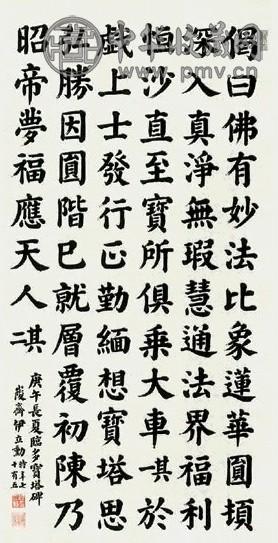 中华收藏网
www.pmv.cn
偈曰佛有妙法比象蓮華圓頓
深入真淨無瑕慧通法界福利
恒沙直至寶所俱乘大車其一於
戲上士發行正勤緬想寶塔思
弘勝因圓階已就層覆初陳乃
昭帝夢福應天人其二
庚午長夏臨多寶塔碑
峻齋伊立勳時年七十有五